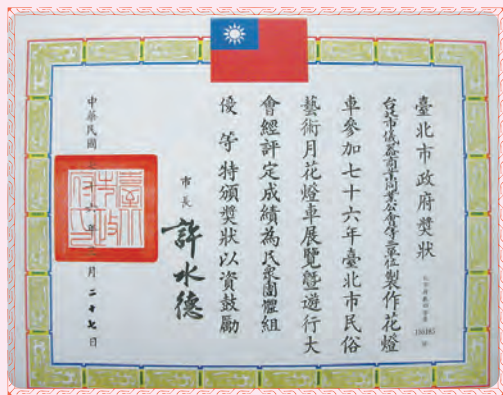 臺北市政府獎狀
台北市儀器商業同業公會等三單位製作花燈
車參加七十六年臺北市民俗
藝術月花燈車展覽暨遊行大
會經評定成績為民眾團體組
優等特頒獎狀以資鼓勵
市長 許水德
中華民國 年 月二十七日